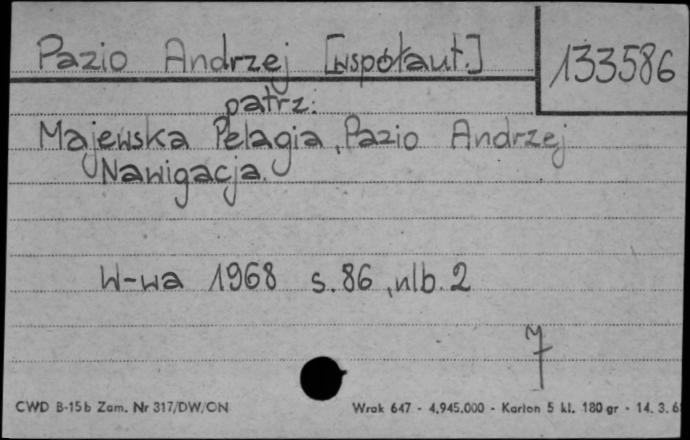 Pazio Andrzej [współaut.] 133586
patrz:
Majewska Pelagia, Pazio Andrzej
Nawigacja.
W-wa 1968 s. 86, nlb. 2
CWD B-15b Zam. Nr 317/DW/ON Wrak 647 - 4.945.000 - Karton 5 kl. 180 gr - 14. 3. 6